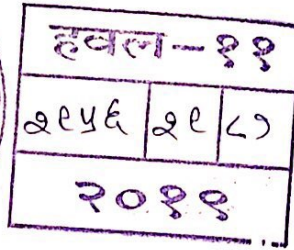 हवल-११
२९५६ २९ ८७
२०१९